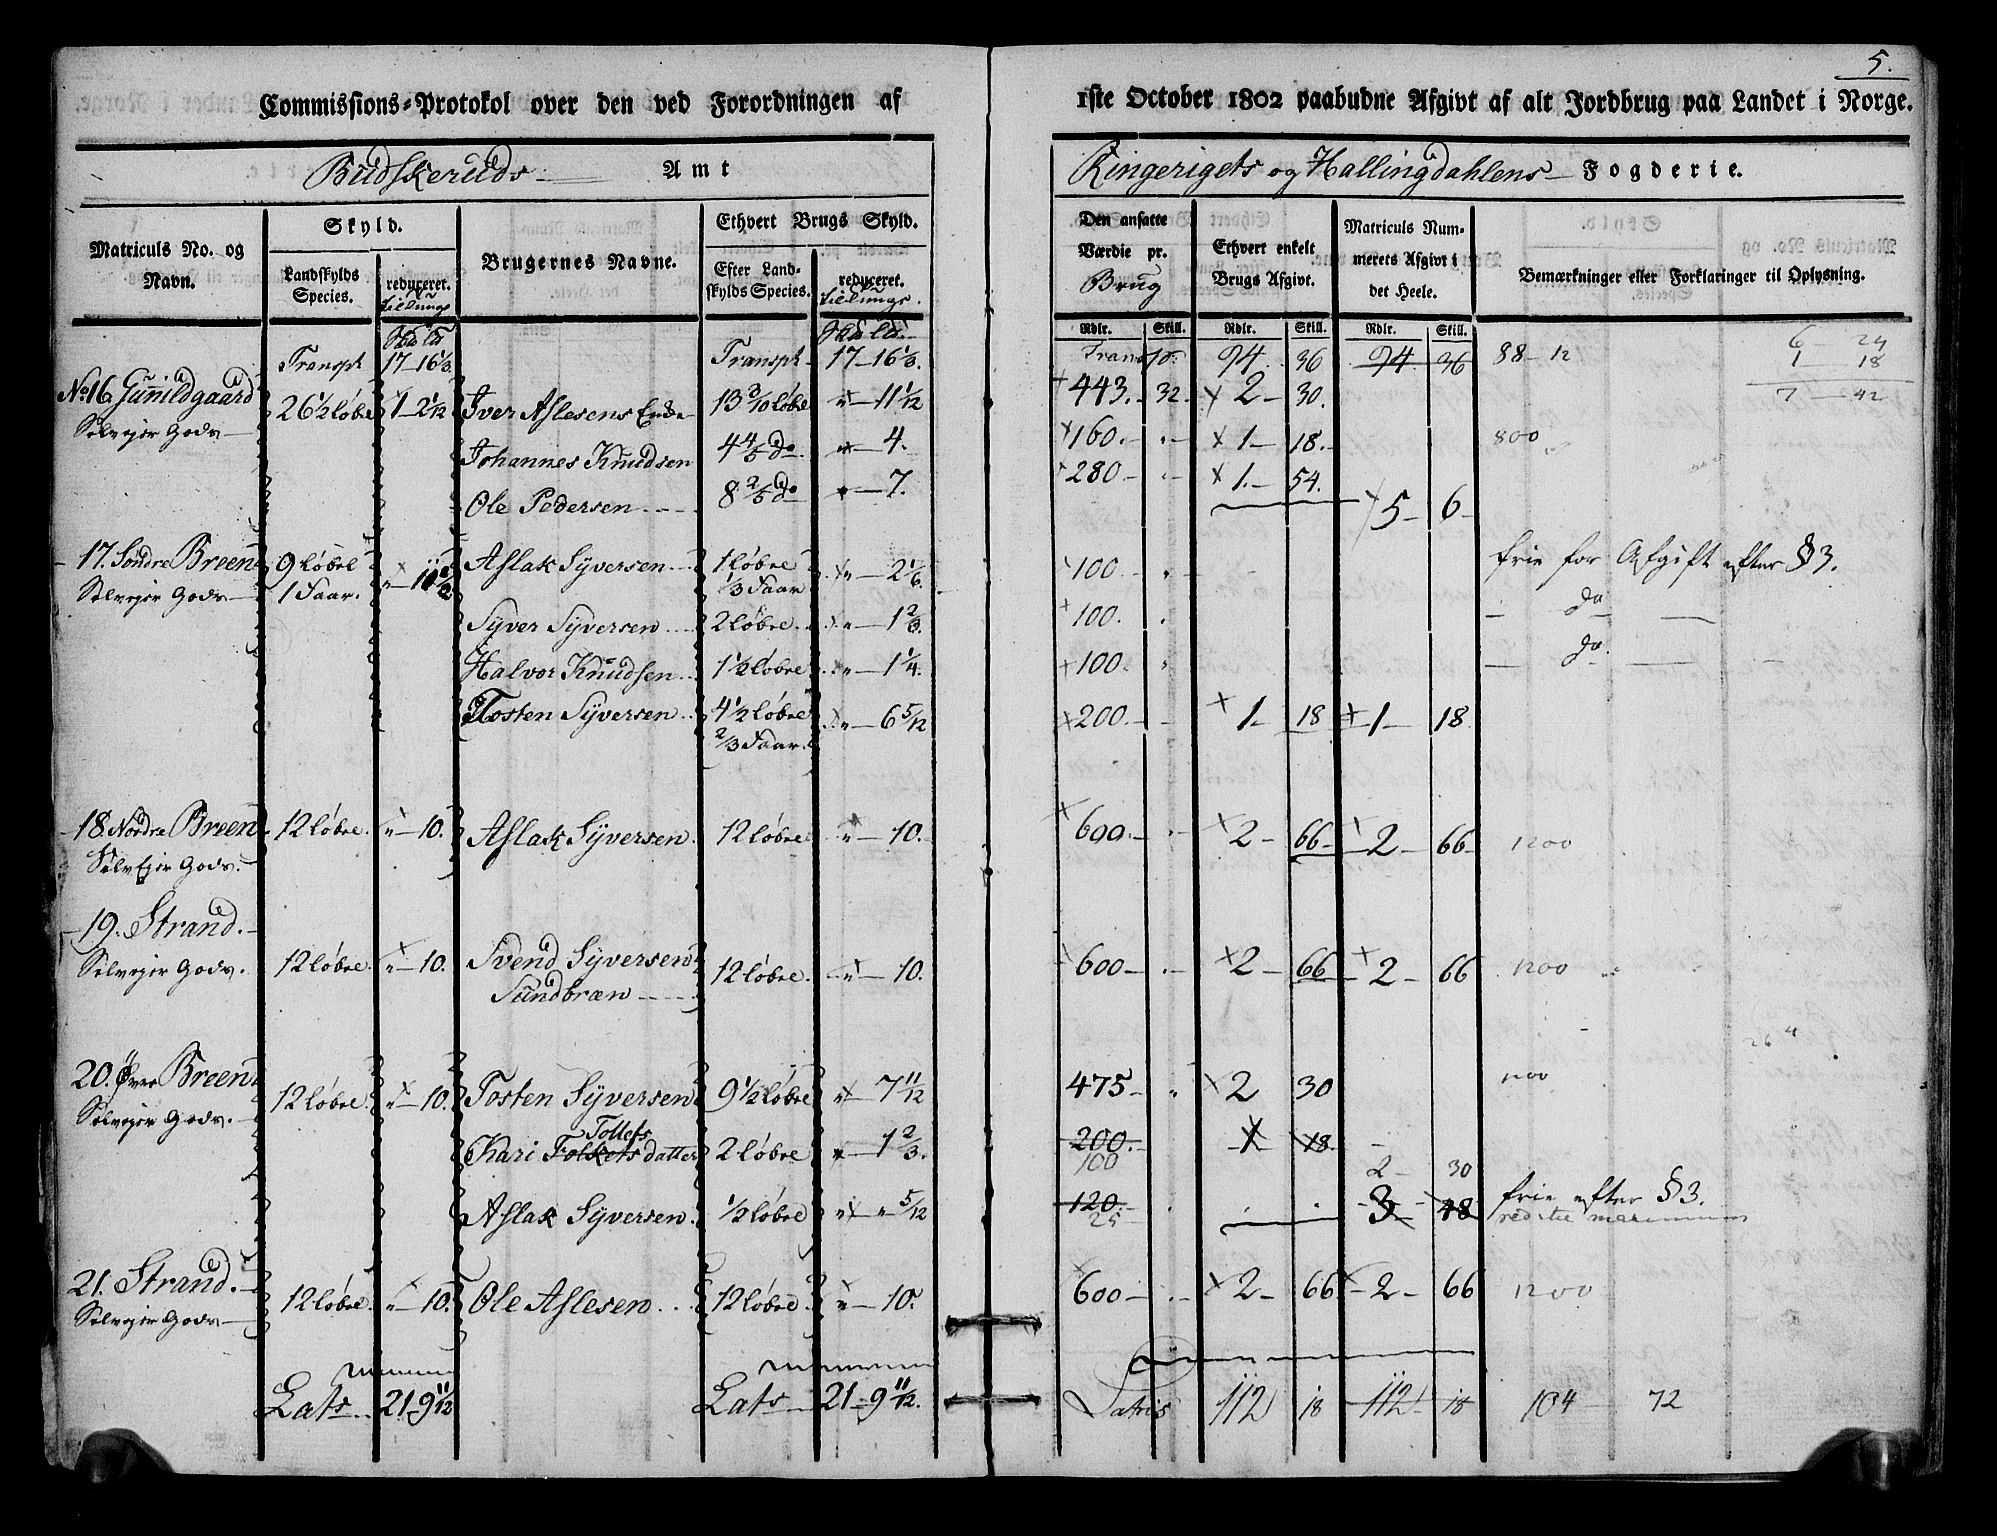 5.
Commissions-Protokol over den ved Forordningen af 1ste October 1802 paabudne Afgivt af alt Jordbrug paa Landet i Norge.
Budskeruds Amt Ringerigets og Hallingdahlens Fogderie.
Matriculs No. og Navn. Skyld. Landskylds Species. reduceret. Brugernes Navne. Ethvert Brugs Skyld. Efter Landskylds Species. reduceret.
Den ansatte Værdie pr. Brug Ethvert enkelt Brugs Afgivt. Matriculs Nummerets Afgivt i det Heele. Bemærkninger eller Forklaringer til Oplysning.
Rdlr. Skill. Rdlr. Skill. Rdlr. Skill.
Transpt 17 - 16 1/3 Transpt 17 - 16 1/3. Transp. 94 36 94 36 88 - 12 6 - 24
1 - 18
7 - 42
No 16. Gunildgaard 26 1/2 løbe 1 - 2 1/12 Iver Aslesens Enke 13 3/10 løbe " - 11 1/12 443. 32. 2 - 30.
Selvejer Gods Johannes Knudsen 4 4/5 do " - 4. 160. 1 - 18. 800
Ole Pedersen 8 2/5 do " - 7. 280 1. 54. 5 - 6
17. Søndre Breen 9 løbe Aslak Syversen 1 løbe " - 2 1/6 100. " frie for Afgift efter § 3.
Selvejer Gods 1 Faar. 1/3 Faar
Syver Syversen 2 løbe " - 1 2/3. 100. do
Halvor Knudsen 1 1/2 løbe " - 1 1/4. 100. " do.
Tosten Syversen 4 1/2 løbe " - 6 5/12 200. 1 - 18 1 - 18
2/3 Faar.
18. Nordre Breen 12 løbe. " - 10. Aslak Syversen 12 løbe. " - 10. 600. 2 - 66 2 - 66 1200
Selvejer Gods.
19. Strand.
Selvejer Gods. 12 løbe. " - 10. Svend Syversen 12 løbe. " - 10. 600 2 - 66 2 - 66 1200
Sundbræn
20. Øvre Breen 12 løbe. " - 10. Tosten Syversen 9 1/2 løbe " - 7 11/12 475 " 2 30 1200
Selvejer Gods. Tollefs
Kari Folkets datter 2 løbe " - 1 2/3. 200. 1 18.
100 2 - 30
Aslak Syversen. 1/2 løbe " - " 5/12 120. 3 - 48 frie efter § 3.
25
21. Strand. 12 løbe. " - 10. Ole Aslesen 12 løbe. " - 10. 600 2 - 66 2 - 66 1200
Selvejer Gods
Lats 21 - 9 11/12 Lats 21 - 9 11/12. Latris 112 18 112 18 104 72